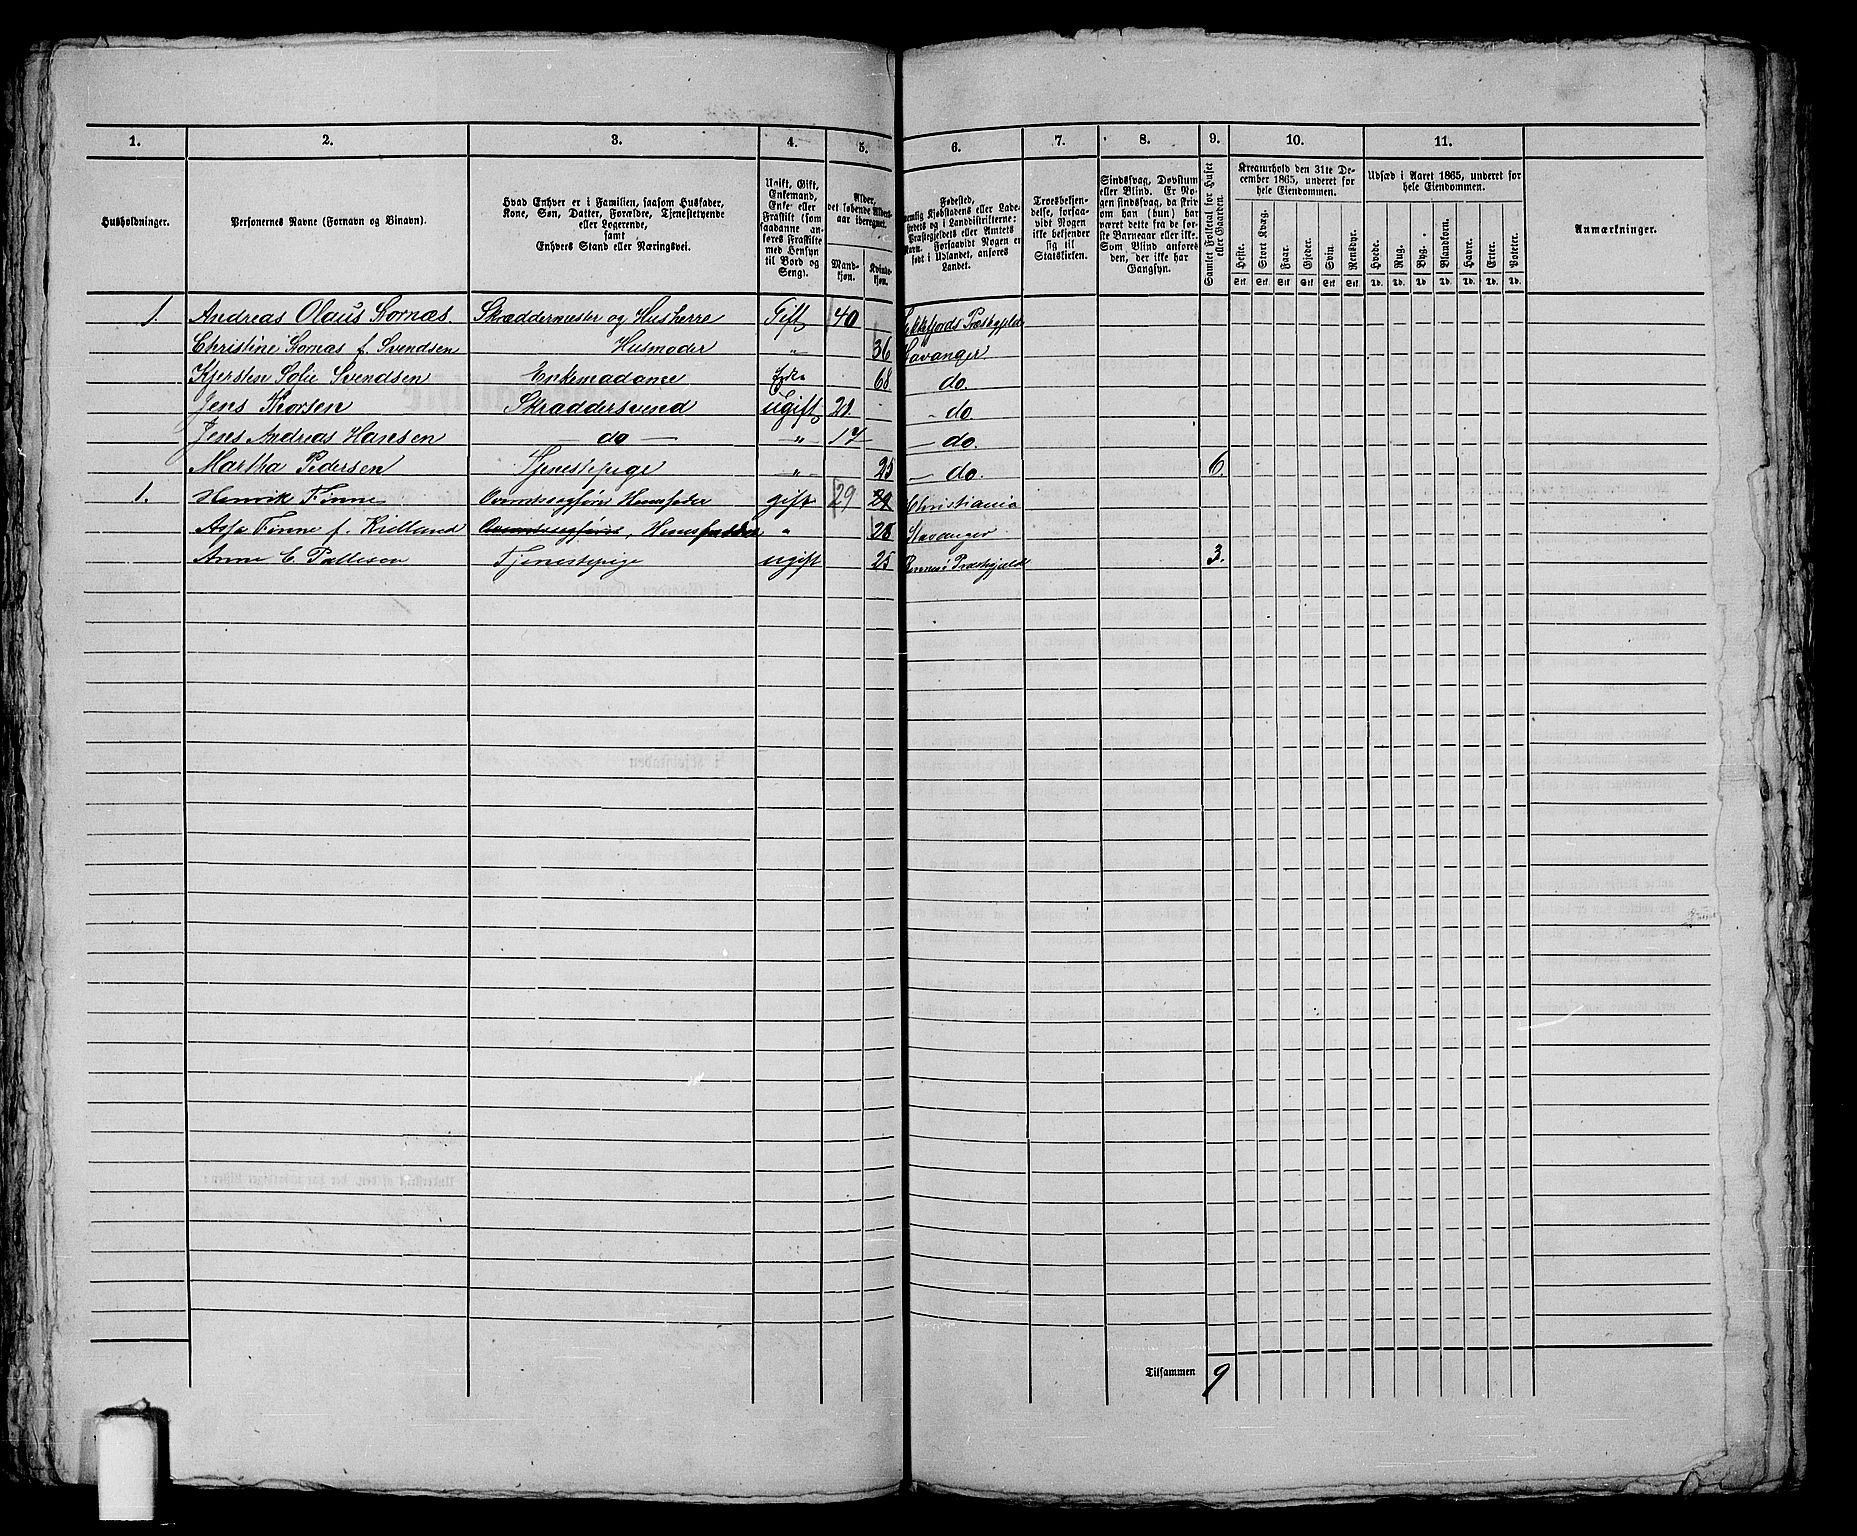 1. 2. 3. 4. 5. 6. 7. 8. 9. 10. 11.
Husholdninger.
Personernes Navne (Fornavn og Binavn).
Hvad Enhver er i Familien, saasom Husfader,
Kone, Søn, Datter, Forældre, Tjenestetyende
eller Logerende,
samt
Enhvers Stand eller Næringsvei.
Ugift, Gift,
Enkemand,
Enke- eller
Fraskilt (som
saadanne an-
føres Fraskilte
med Hensyn
til Bord og
Seng).
Alder,
det løbende Alders-
aar iberegnet.
Mand-
kjøn.
Kvinde-
kjøn.
Fødested,
nemlig Kjøbstadens eller Lade-
stedets og i Landdistrikterne:
Præstegjeldets eller Amtets
Navn. Forsaavidt Nogen er
født i Udlandet, anføres
Landet.
Troesbekjen-
delse, forsaa-
vidt Nogen
ikke bekjender
sig til
Statskirken.
Sindssvag, Døvstum
eller Blind. Er No-
gen sindssvag, da skriv
om han (hun) har
været dette fra de før-
ste Barneaar eller ikke.
Som Blind anføres
den, der ikke har
Gangsyn.
Samlet Folketal for Huset
eller Gaarden.
Kreaturhold den 31te De-
cember 1865, underet for
hele Eiendommen.
Heste. Stort Kvæg. Faar. Gjeder. Svin. Rensdyr.
Stk. Stk. Stk. Stk. Stk. Stk.
Udsæd i Aaret 1865, underet for
hele Eiendommen.
Hvede. Rug. Byg. Blandkorn. Havre. Erter. Poteter.
Td. Td. Td. Td. Td. Td. Td.
Anmærkninger.
1. Andreas Olaus Sornæs. Skræddermester og Husherre Gift 40 Præstegjeld
Christine Sornæs f. Svendsen Husmoder " 36 Stavanger
Kjersten Sofie Svendsen Enkemadame Enke 68 do.
Jens Thorsen Skræddersvend Ugift 21 do.
Jens Andreas Hansen do " 17 do.
Martha Pedersen Tjenestepige " 25 do. 6.
1. Henrik Finne Husfader gift 29 29 Christiania
Finne f. Kielland " 28 Stavanger
Anne C. Tjenestepige ugift 25 Rennesø Præstegjeld 3.
Tilsammen 9